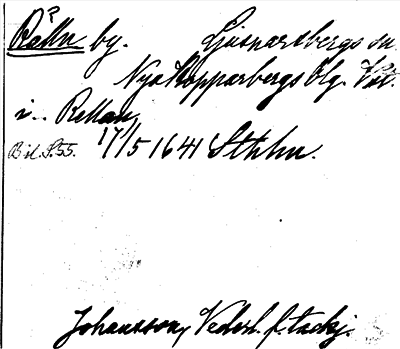 ?
Rälln by. Ljusnarsbergs sn.
Nya Kopparbergs blg. Vstl.
i.. Rellan,
Bil. S. 55. 17/5 1641 Sthlm.
Johansson, Nederl. f. tackj.